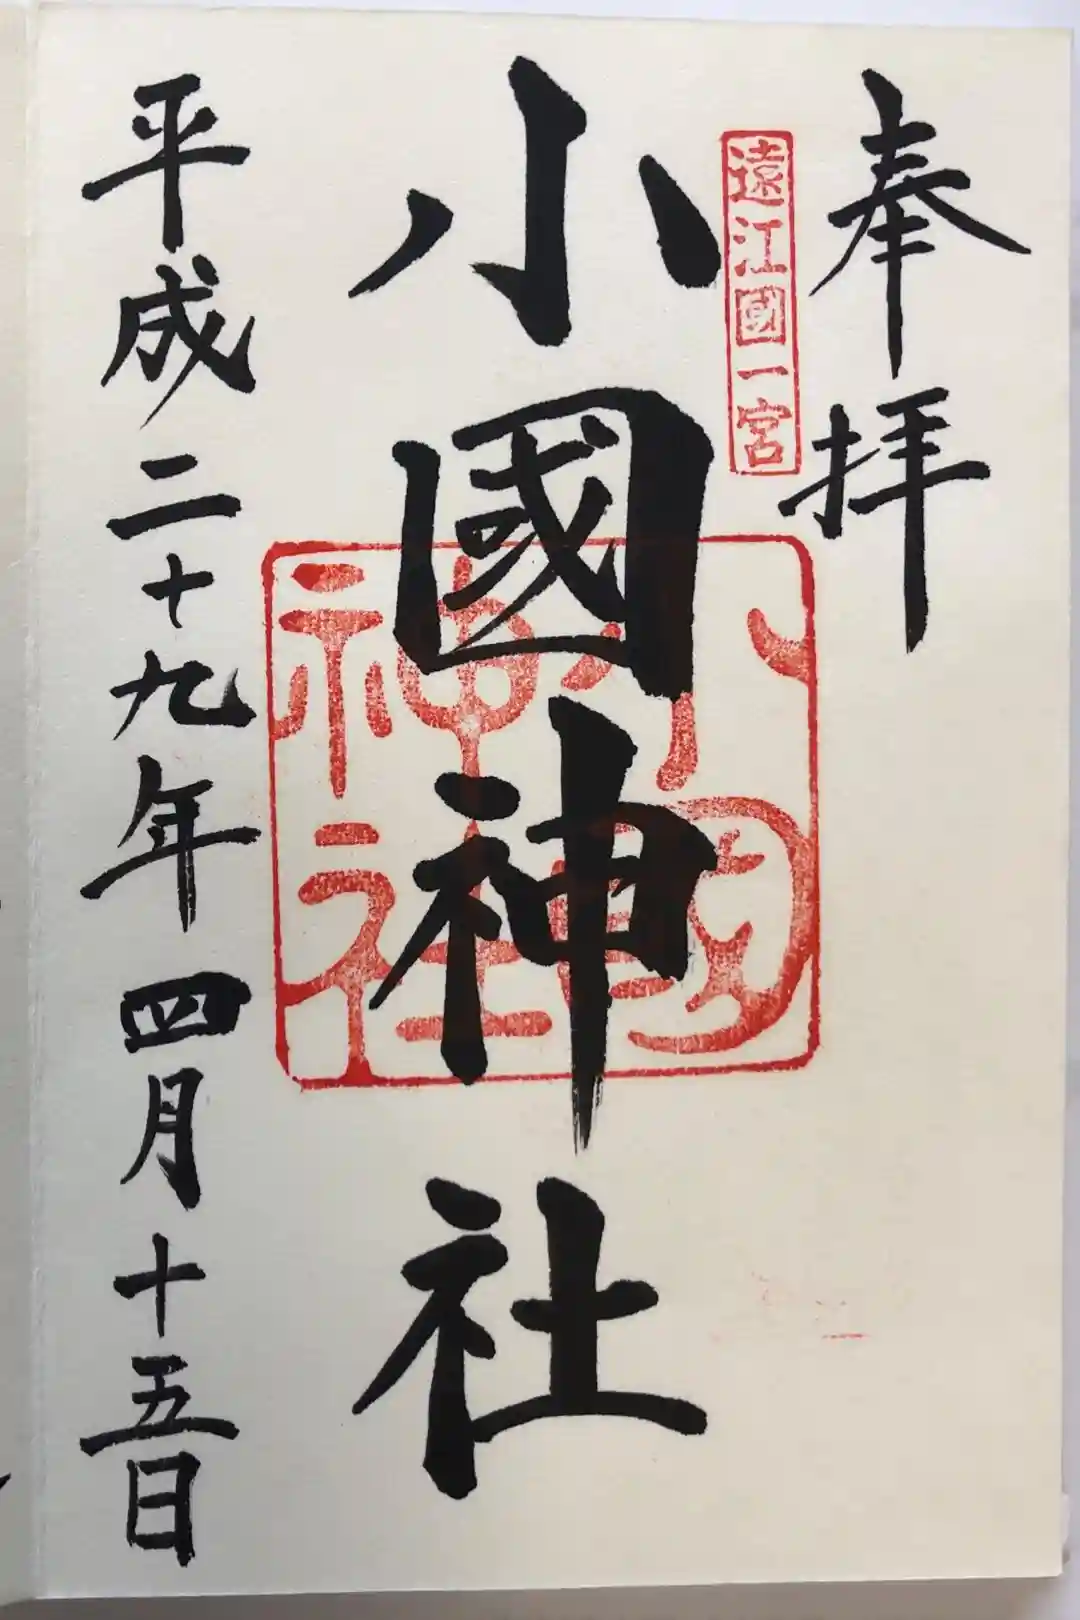 奉拝
遠江國一宮
小國神社
小國
神社
平成二十九年四月十五日